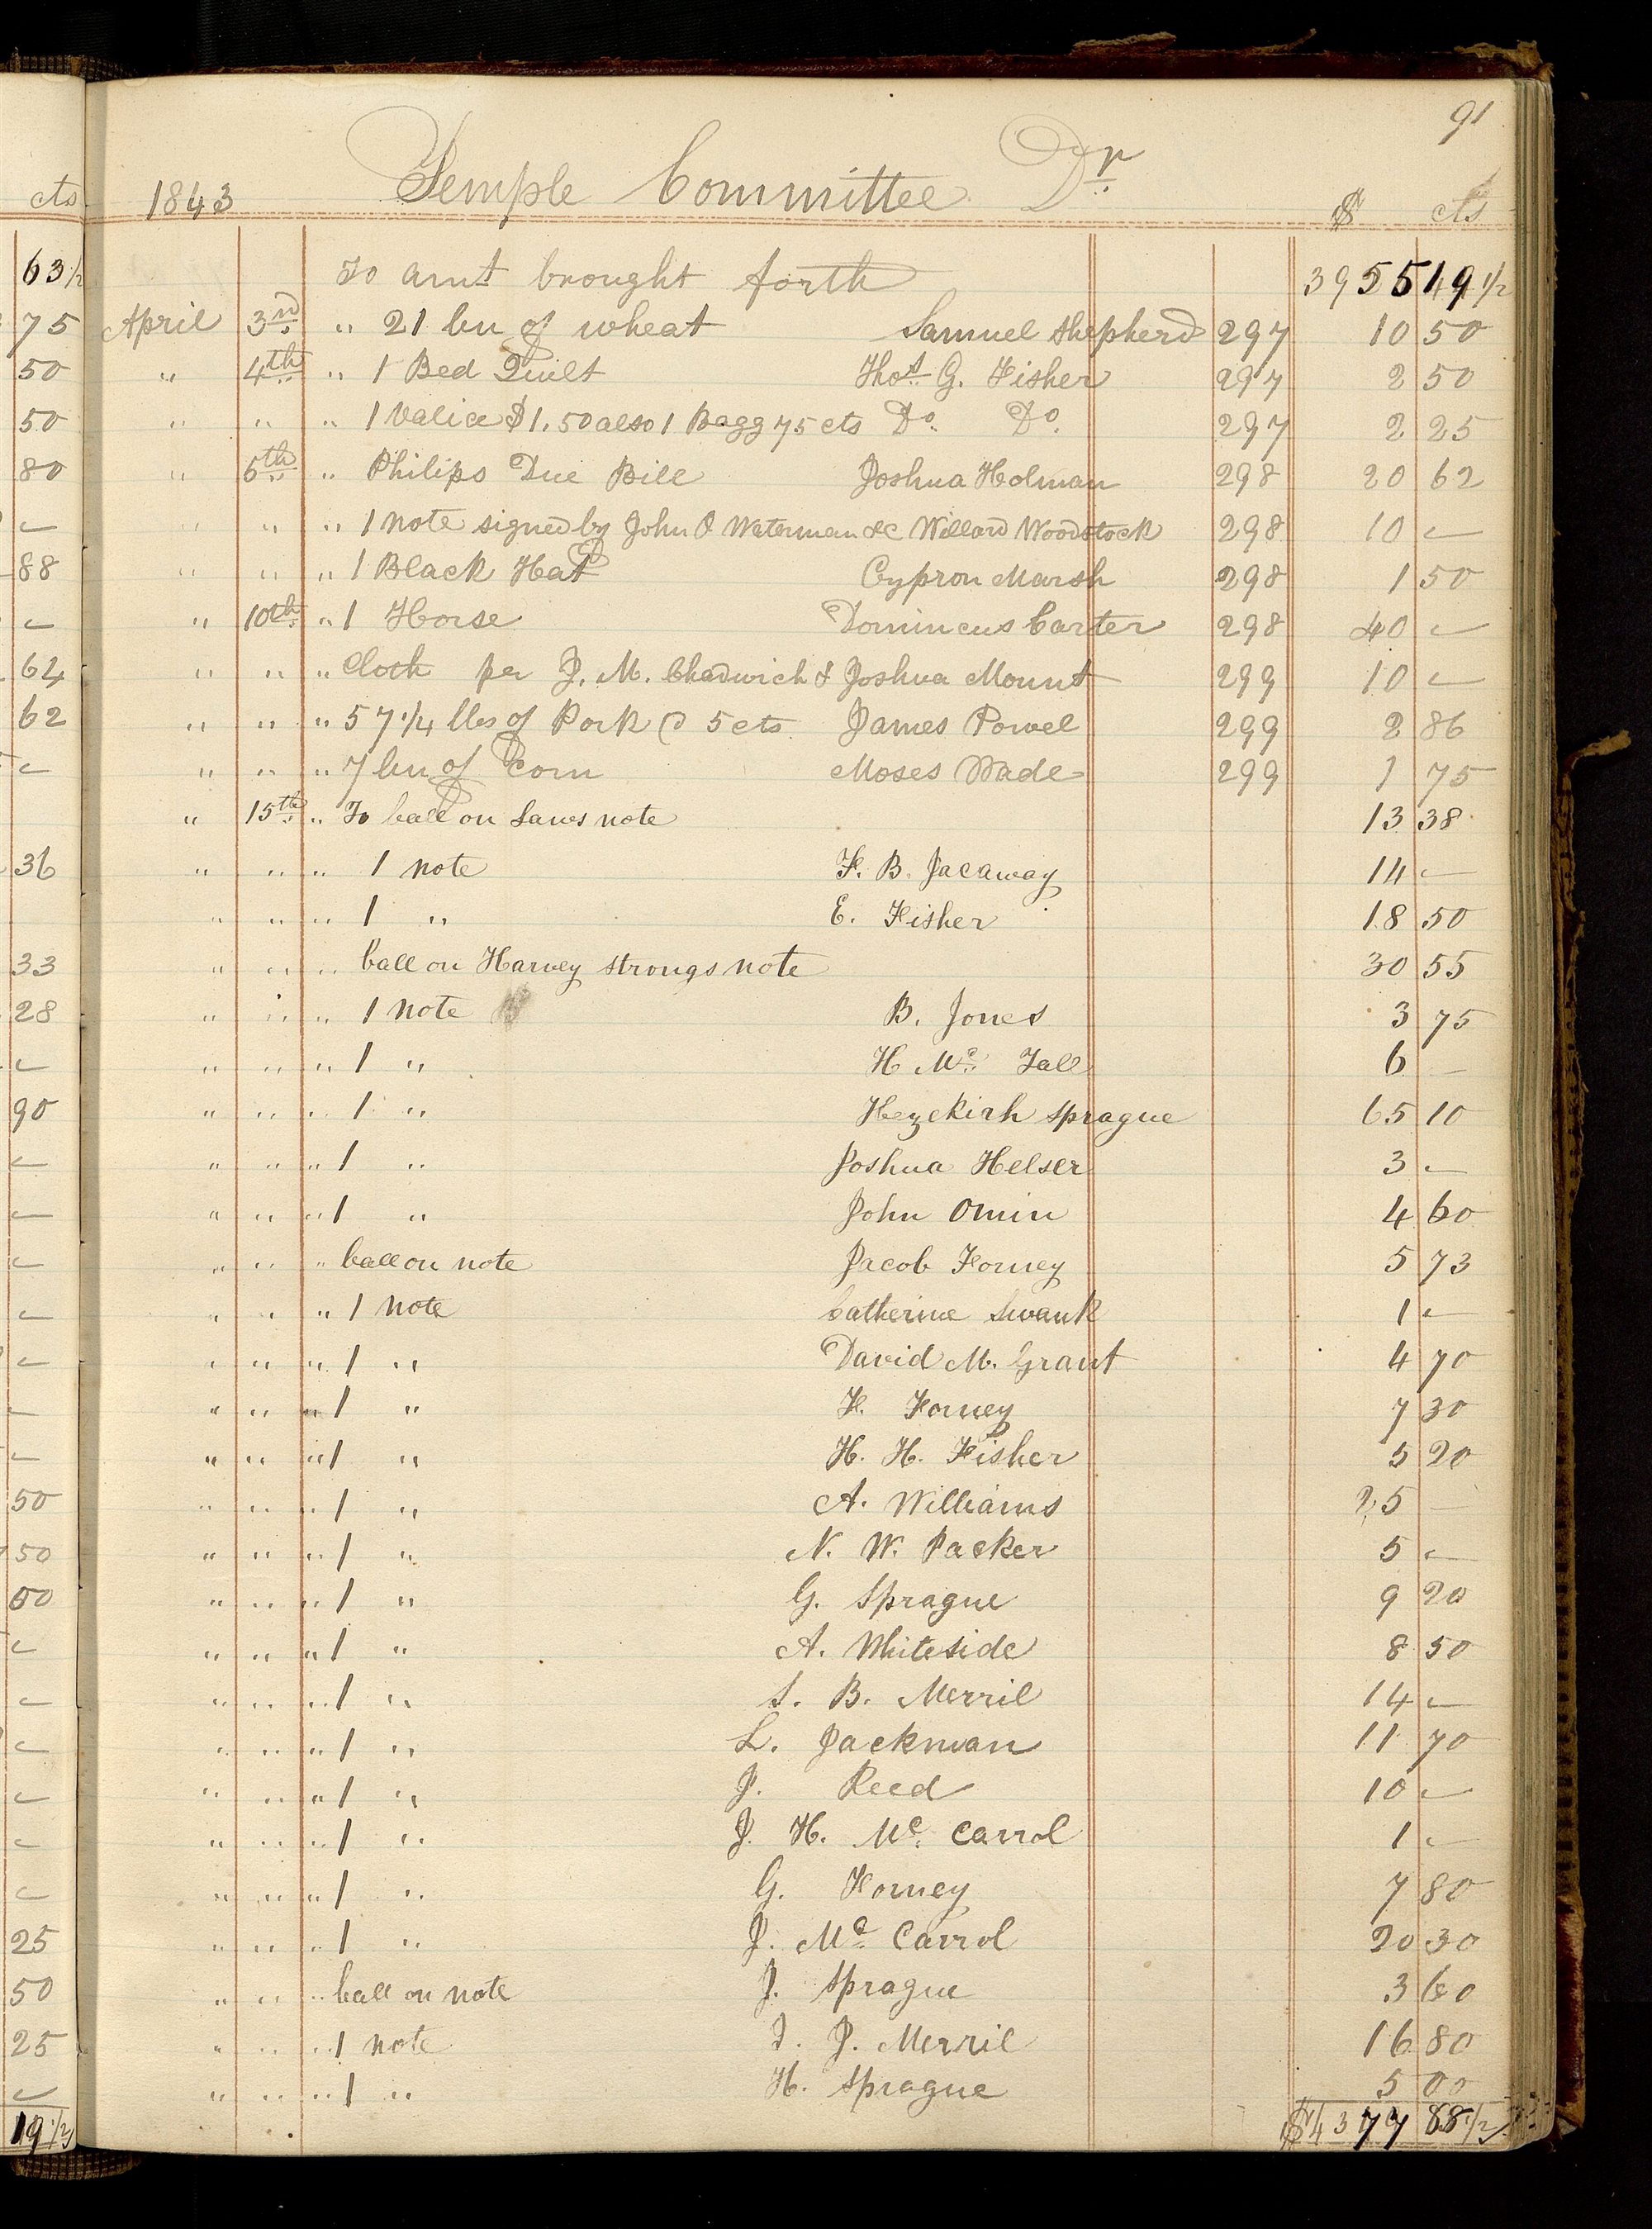 91
1843 Temple Committee Dr. $ cts
cts
To amt brought forth 3955 19 1/2
63 1/2
75 April 3rd " 21 bu of wheat Samuel Shepherd 297 10 50
50 " 4th " 1 Bed Quilt Thos. G. Fisher 297 2 50
50 " " " 1 Valice $1.50 also 1 Bagg 75 cts Do. Do. 297 2 25
80 " 5th " Philips Due Bill Joshua Holman 298 20 62
— " " " 1 note signed by John O Waterman &c Willard Woodstock 298 10 —
88 " " " 1 Black Hat Cypron Marsh 298 1 50
— " 10th " 1 Horse Domincus Carter 298 40 —
64 " " " Cloth per J. M. Chadwich & Joshua Mount 299 10 —
62 " " " 57 1/4 lbs of Pork @ 5 cts James Powel 299 2 86
— " " " 7 bu of Corn Moses Wade 299 1 75
" 15th " To ball on Laws note 13 38
36 " " " 1 note F. B. Jacaway 14 —
" " " 1 " E. Fisher 18 50
33 " " " ball on Harvey strongs note 30 55
28 " " " 1 note B. Jones 3 75
— " " " 1 " H Mc. Fall 6 —
90 " " " 1 " Hezekirh Sprague 65 10
— " " " 1 " Joshua Helser 3 —
— " " " 1 " John Omin 4 60
— " " " ball on note Jacob Forney 5 73
— " " " 1 note Catherine Swank 1 —
— " " " 1 " David M. Grant 4 70
— " " " 1 " F. Forney 7 30
— " " " 1 " H. H. Fisher 5 20
50 " " " 1 " A. Williams 25 —
50 " " " 1 " N. W. Packer 5 —
00 " " " 1 " G. Sprague 9 20
— " " " 1 " A. Whiteside 8 50
— " " " 1 " S. B. Merril 14 —
— " " " 1 " L. Jackman 11 70
— " " " 1 " J. Reed 10 —
— " " " 1 " J. H. Mc. Carrol 1 —
— " " " 1 " G. Forney 7 80
25 " " " 1 " J. Mc. Carrol 20 30
50 " " " ball on note J. Sprague 3 60
25 " " " 1 note J. Merril 16 80
— " " " 1 " H. Sprague 5 00
19 1/2 $4377 88 1/2